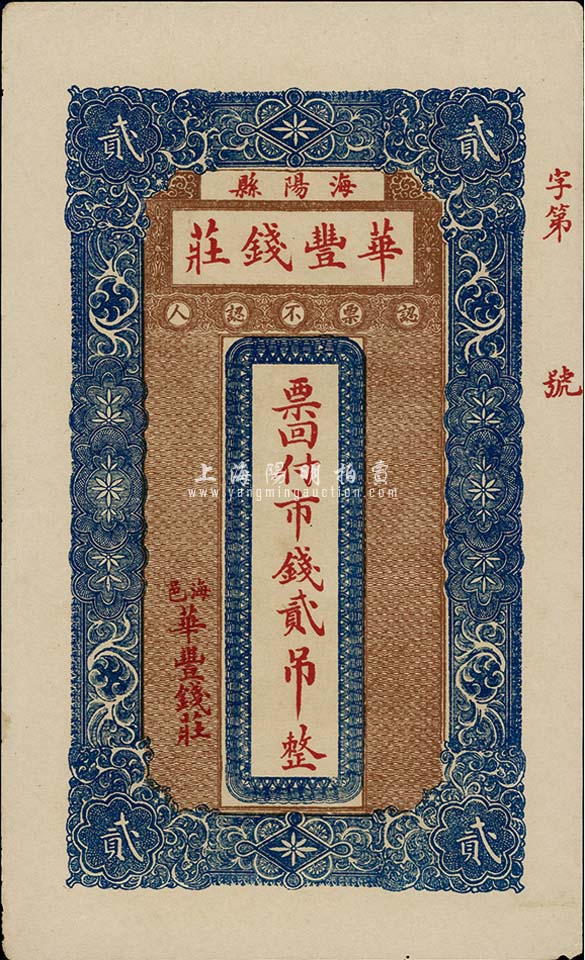 貳
貳
海陽縣
華豐錢莊
認票不認人
票回付市錢貳吊整
海邑
華豐錢莊
字第
號
上海陽明拍賣
www.yangmingauction.com
貳
貳